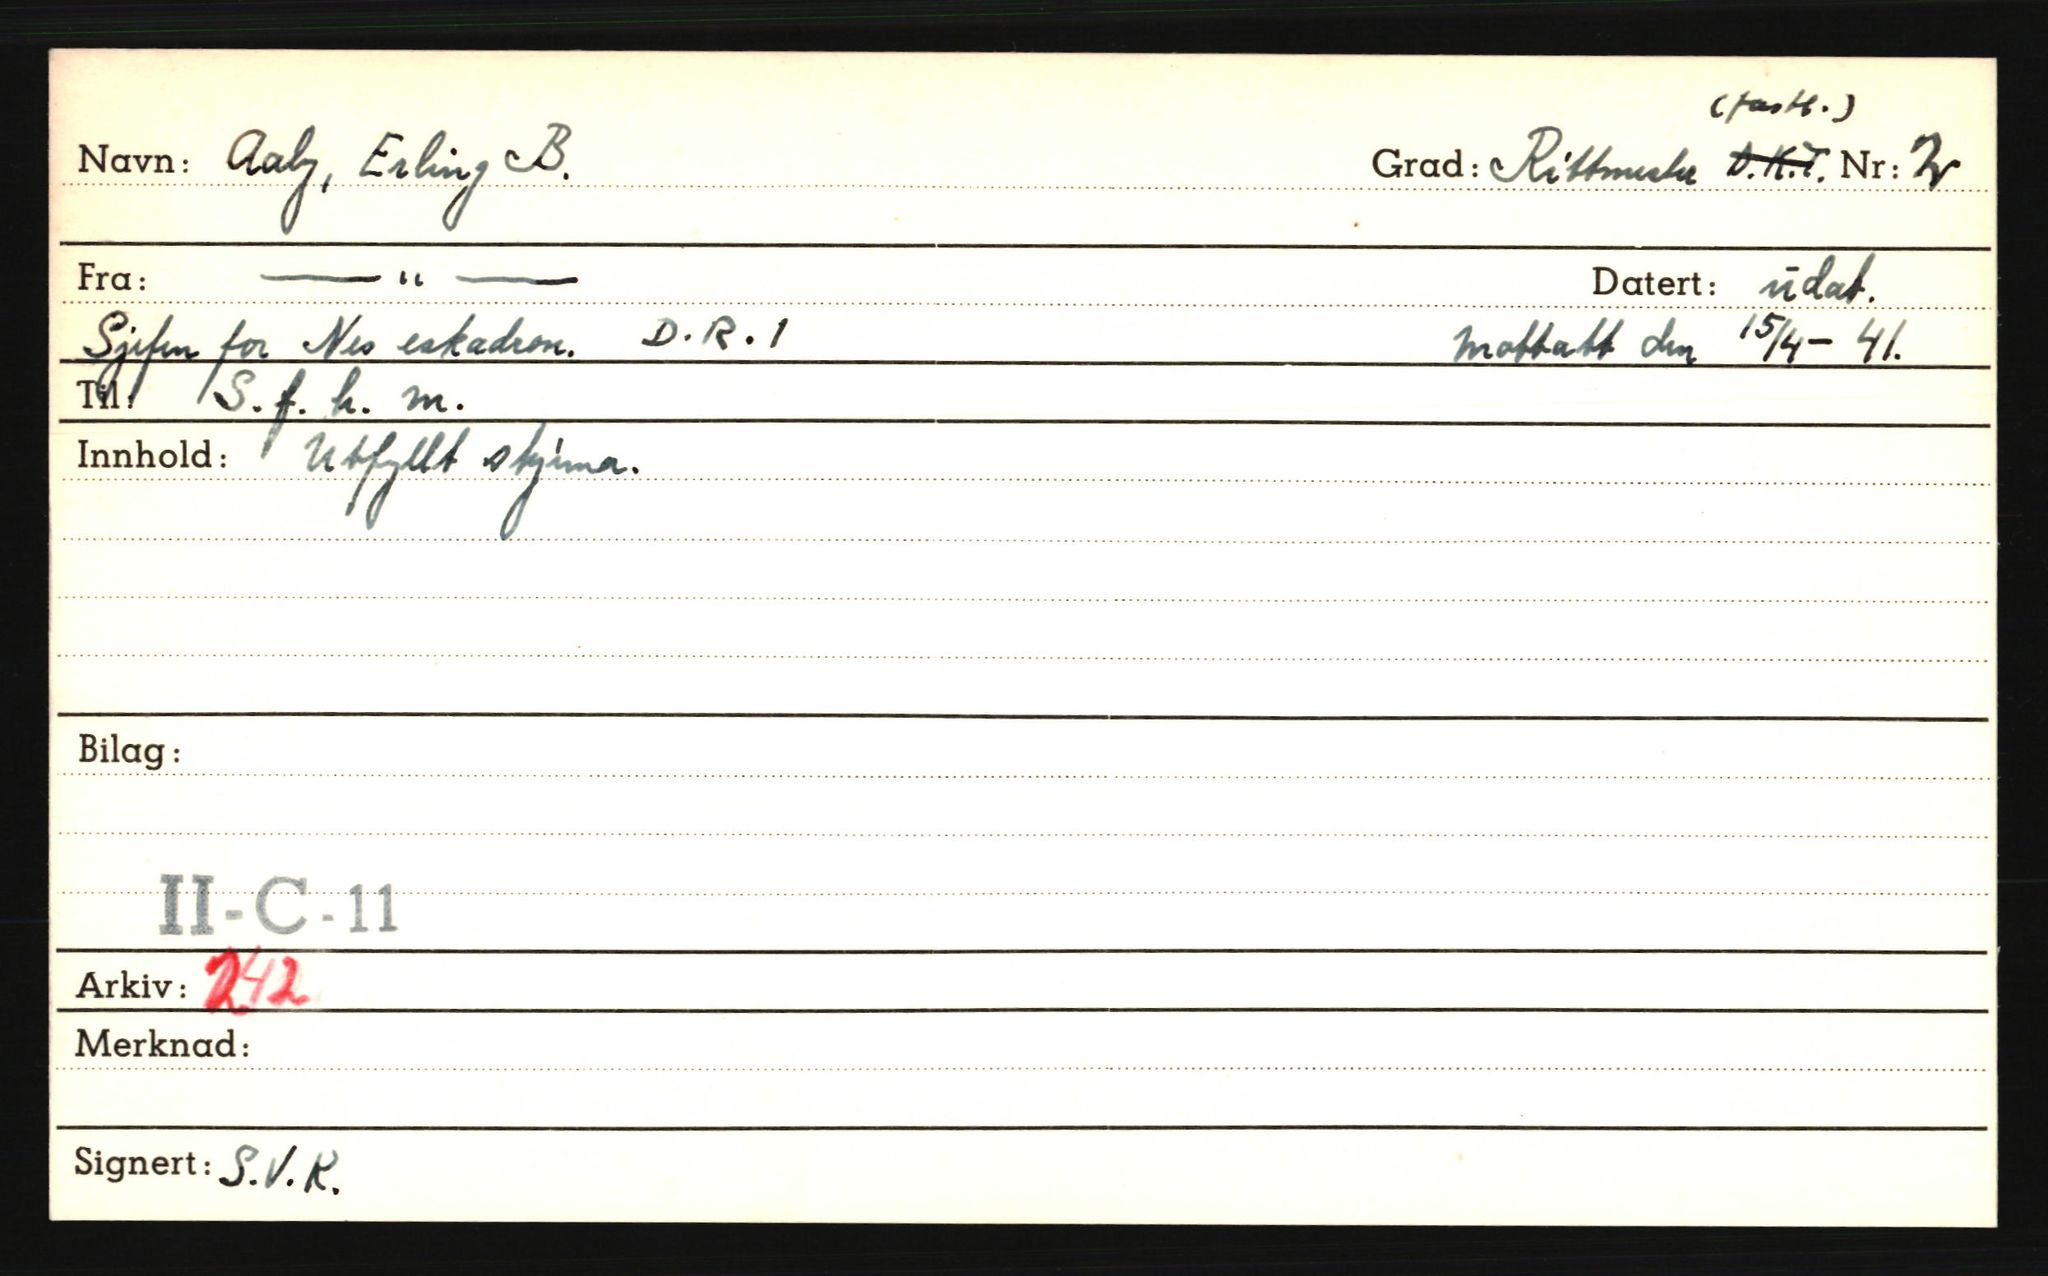 (fastl.)
Navn: Aaby, Erling B. Grad: Rittmester D.K.T. Nr: 2
Fra: — " — Datert: udat.
Sjefen for Nes eskadron. D.R.1 Mottatt den 15/4-41.
Til: S.f.h.m.
Innhold: Utfyllt skjema.
Bilag:
II-C-11
Arkiv: 242
Merknad:
Signert: S.V.K.